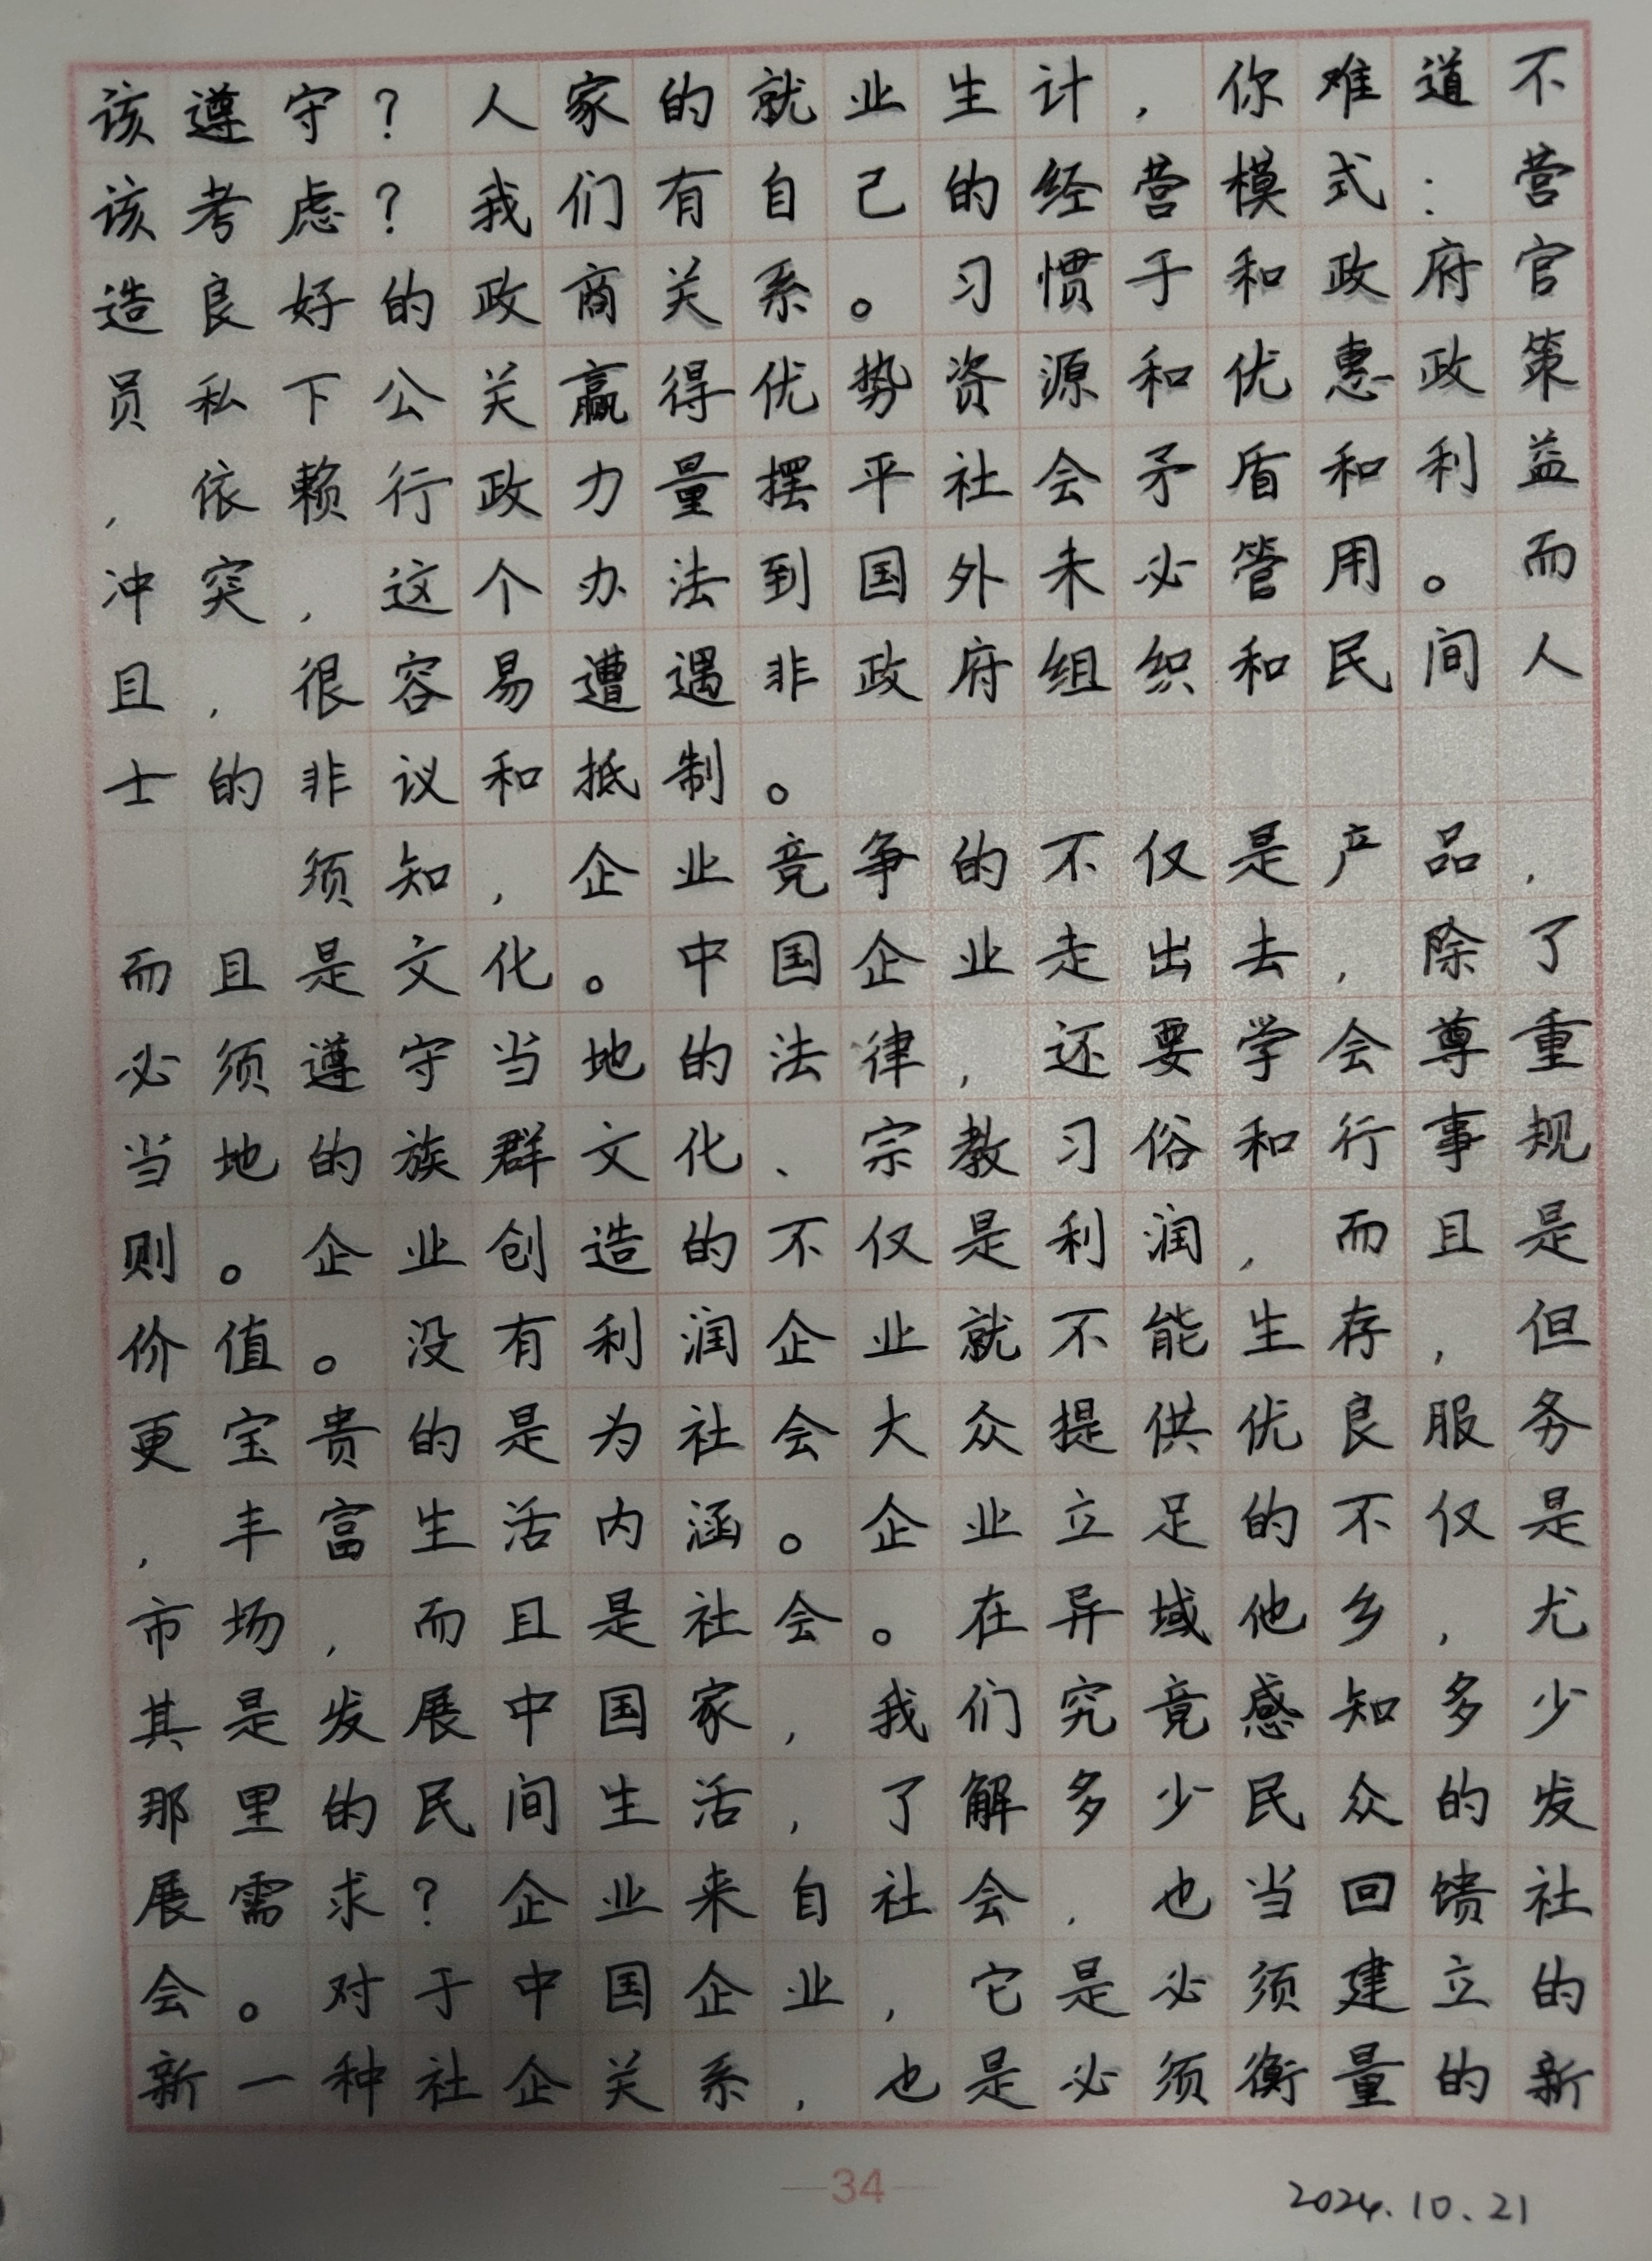 该遵守?人家的就业生计,你难道不
该考虑?我们有自己的经营模式:营
造良好的政商关系。习惯于和政府官
员私下公关赢得优势资源和优惠政策
,依赖行政力量摆平社会矛盾和利益
冲突,这个办法到国外未必管用。而
且,很容易遭遇非政府组织和民间人
士的非议和抵制。
须知,企业竞争的不仅是产品,
而且是文化。中国企业走出去,除了
必须遵守当地的法律,还要学会尊重
当地的族群文化、宗教习俗和行事规
则。企业创造的不仅是利润,而且是
价值。没有利润企业就不能生存,但
更宝贵的是为社会大众提供优良服务
,丰富生活内涵。企业立足的不仅是
市场,而且是社会。在异域他乡,尤
其是发展中国家,我们究竟感知多少
那里的民间生活,了解多少民众的发
展需求?企业来自社会,也当回馈社
会。对于中国企业,它是必须建立的
新一种社企关系,也是必须衡量的新
34
2024.10.21